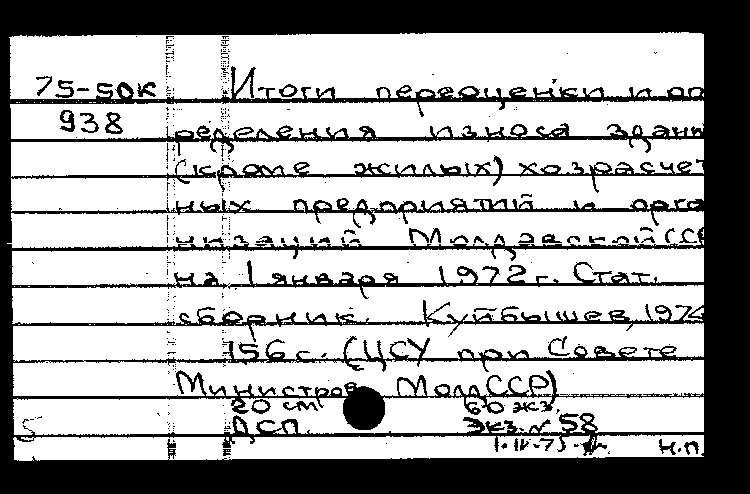 75-50К Итоги переоценки и оп
938 ределения износа здани
(кроме жилых) хозрасчет
ных предприятий и орга
низаций Молдавской ССР
на 1 января 1972 г. Стат.
сборник. Куйбышев, 1974
156 с. (ЦСУ при Совете
Министров МолдССР)
20 см. 60 экз.
ДСП. Экз. № 58
5 1.IV-75
н.п.